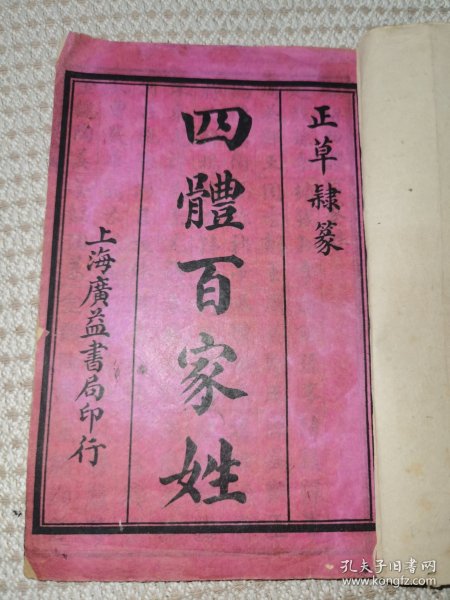 正草隸篆
四體百家姓
上海廣益書局印行
孔夫子旧书网
www.kongfz.com